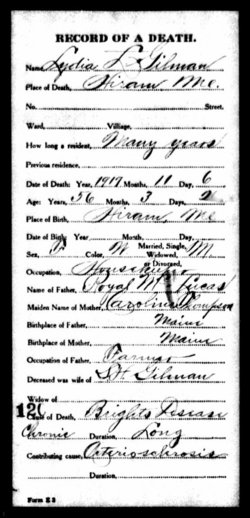 RECORD OF A DEATH.
Name, Lydia L Gilman
Place of Death, Hiram, Me.
No. Street.
Ward, Village,
How long a resident, Many years
Previous residence,
Date of Death: Year, 1917 Months, 11 Day, 6
Age: Years, 56 Months, 3 Days, 2
Place of Birth, Hiram, Me
Date of Birth: Year Month, Day,
Sex, F Color, W Married, Single, Widowed, or Divorced, M
Occupation, Housewife
Name of Father, Royal M Lucas
Maiden Name of Mother, Caroline Thompson
Birthplace of Father, Maine
Birthplace of Mother, Maine
Occupation of Father, Farmer
Deceased was wife of Gilman
Widow of
120 Cause of Death, Brights Disease
Chronic Duration, Long
Contributing cause, Arteriosclerosis
Duration,
Form E 3